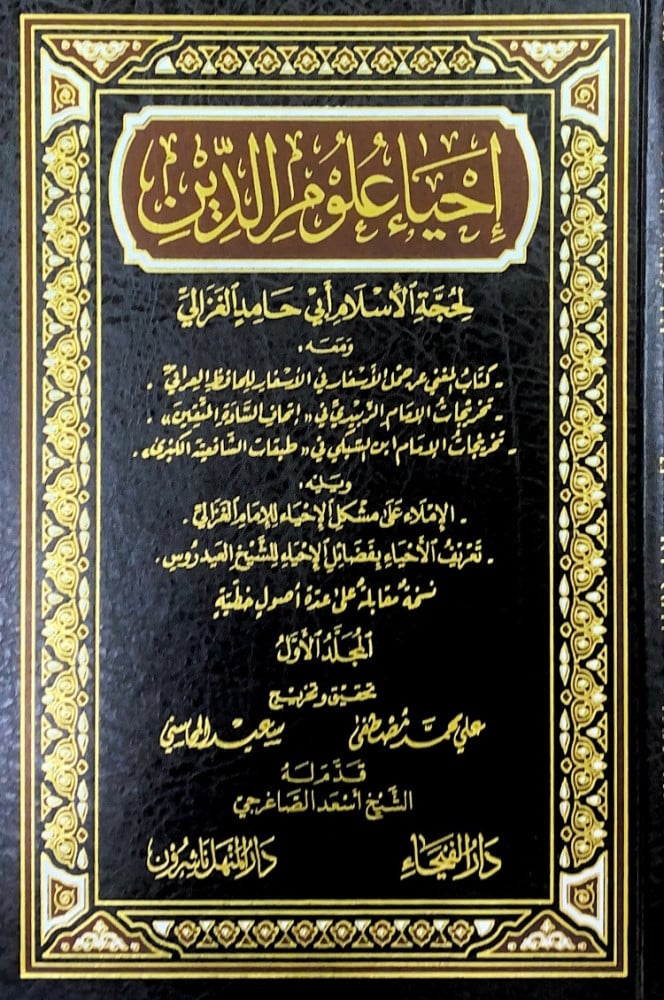 إِحْيَاءُ عُلُومِ الدِّينِ
لِحُجَّةِ الْأِسْلَامِ أَبِي حَامِدٍ الْغَزَالِيِّ
وَمَعَهُ:
- كِتَابُ المُغْنِي عَنْ حَمْلِ الأَسْفَارِ فِي الأَسْفَارِ لِلحَافِظِ العِرَاقِيِّ .
- تَخْرِيجَاتُ الإِمَامِ الزَّبِيدِيِّ فِي « إِتْحَافِ السَّادَةِ المُتَّقِينَ » .
- تَخْرِيجَاتُ الإِمَامِ ابْنِ السُّبْكِيِّ فِي « طَبَقَاتِ الشَّافِعِيَّةِ الكُبْرَى » .
وَيَلِيْهِ:
- الإِمْلَاءُ عَلَى مُشْكِلِ الإِحْيَاءِ لِلإِمَامِ الغَزَالِيِّ .
- تَعْرِيفُ الأَحْيَاءِ بِفَضَائِلِ الإِحْيَاءِ لِلشَّيْخِ العَيْدَرُوسِ .
نُسْخَةٌ مُقَابَلَةٌ عَلَى عِدَّةِ أُصُولٍ خَطِّيَّةٍ
المُجَلَّدُ الأَوَّلُ
تحقيق وتخريج
علي محمد مُصْطَفَى سعيد المحاسني
قَدَّمَ لَهُ
الشَّيْخ أَسْعَد الصَّاغَرْجِي
دَارُ الْفَيْحَاءِ دَارُ الْمَنْهَلِ نَاشِرُون